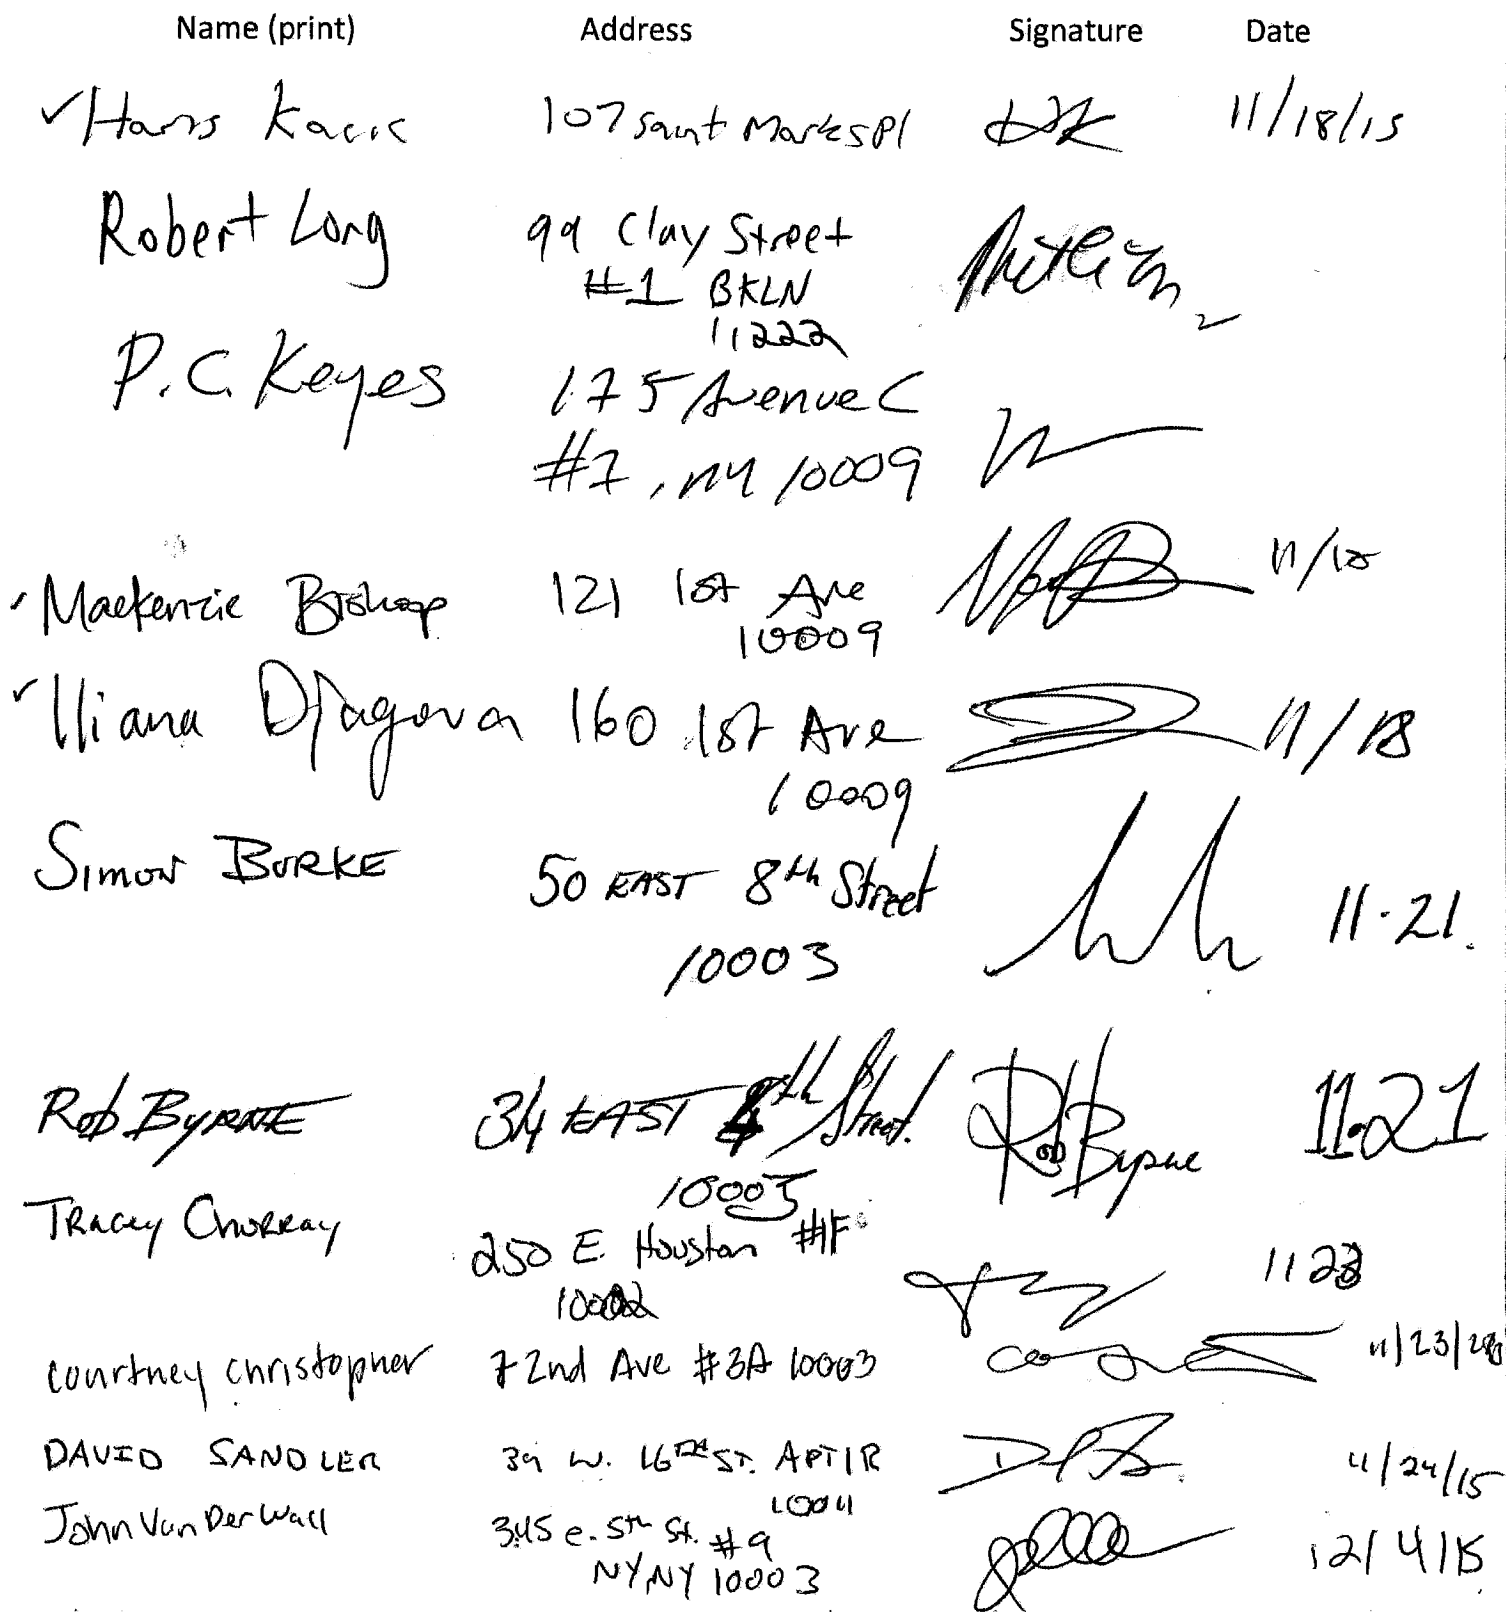 Name (print) Address Signature Date
107 Saint Marks Pl 11/18/15
Robert Long 99 Clay Street
#1 BKLN
11222
P.C. Keyes 175 Avenue C
#7, NY 10009
Mackenzie Bishop 121 1st Ave 11/18
10009
Iliana Djagova 160 1st Ave 11/18
10009
Simon BURKE 50 EAST 8th Street 11.21.
10003
Rob BYRNE 34 EAST th Street. Rob Byrne 11.21
10003
TRACEY 250 E. Houston #1F 11 23
10002
Courtney Christopher 7 2nd Ave #3A 10003 11/23/
DAVID SANDLER 39 W. 16TH ST. APT 1R 11/24/15
10011
John Van Der Wall 345 e. 5th St. #9 12/4/15
NY, NY 10003